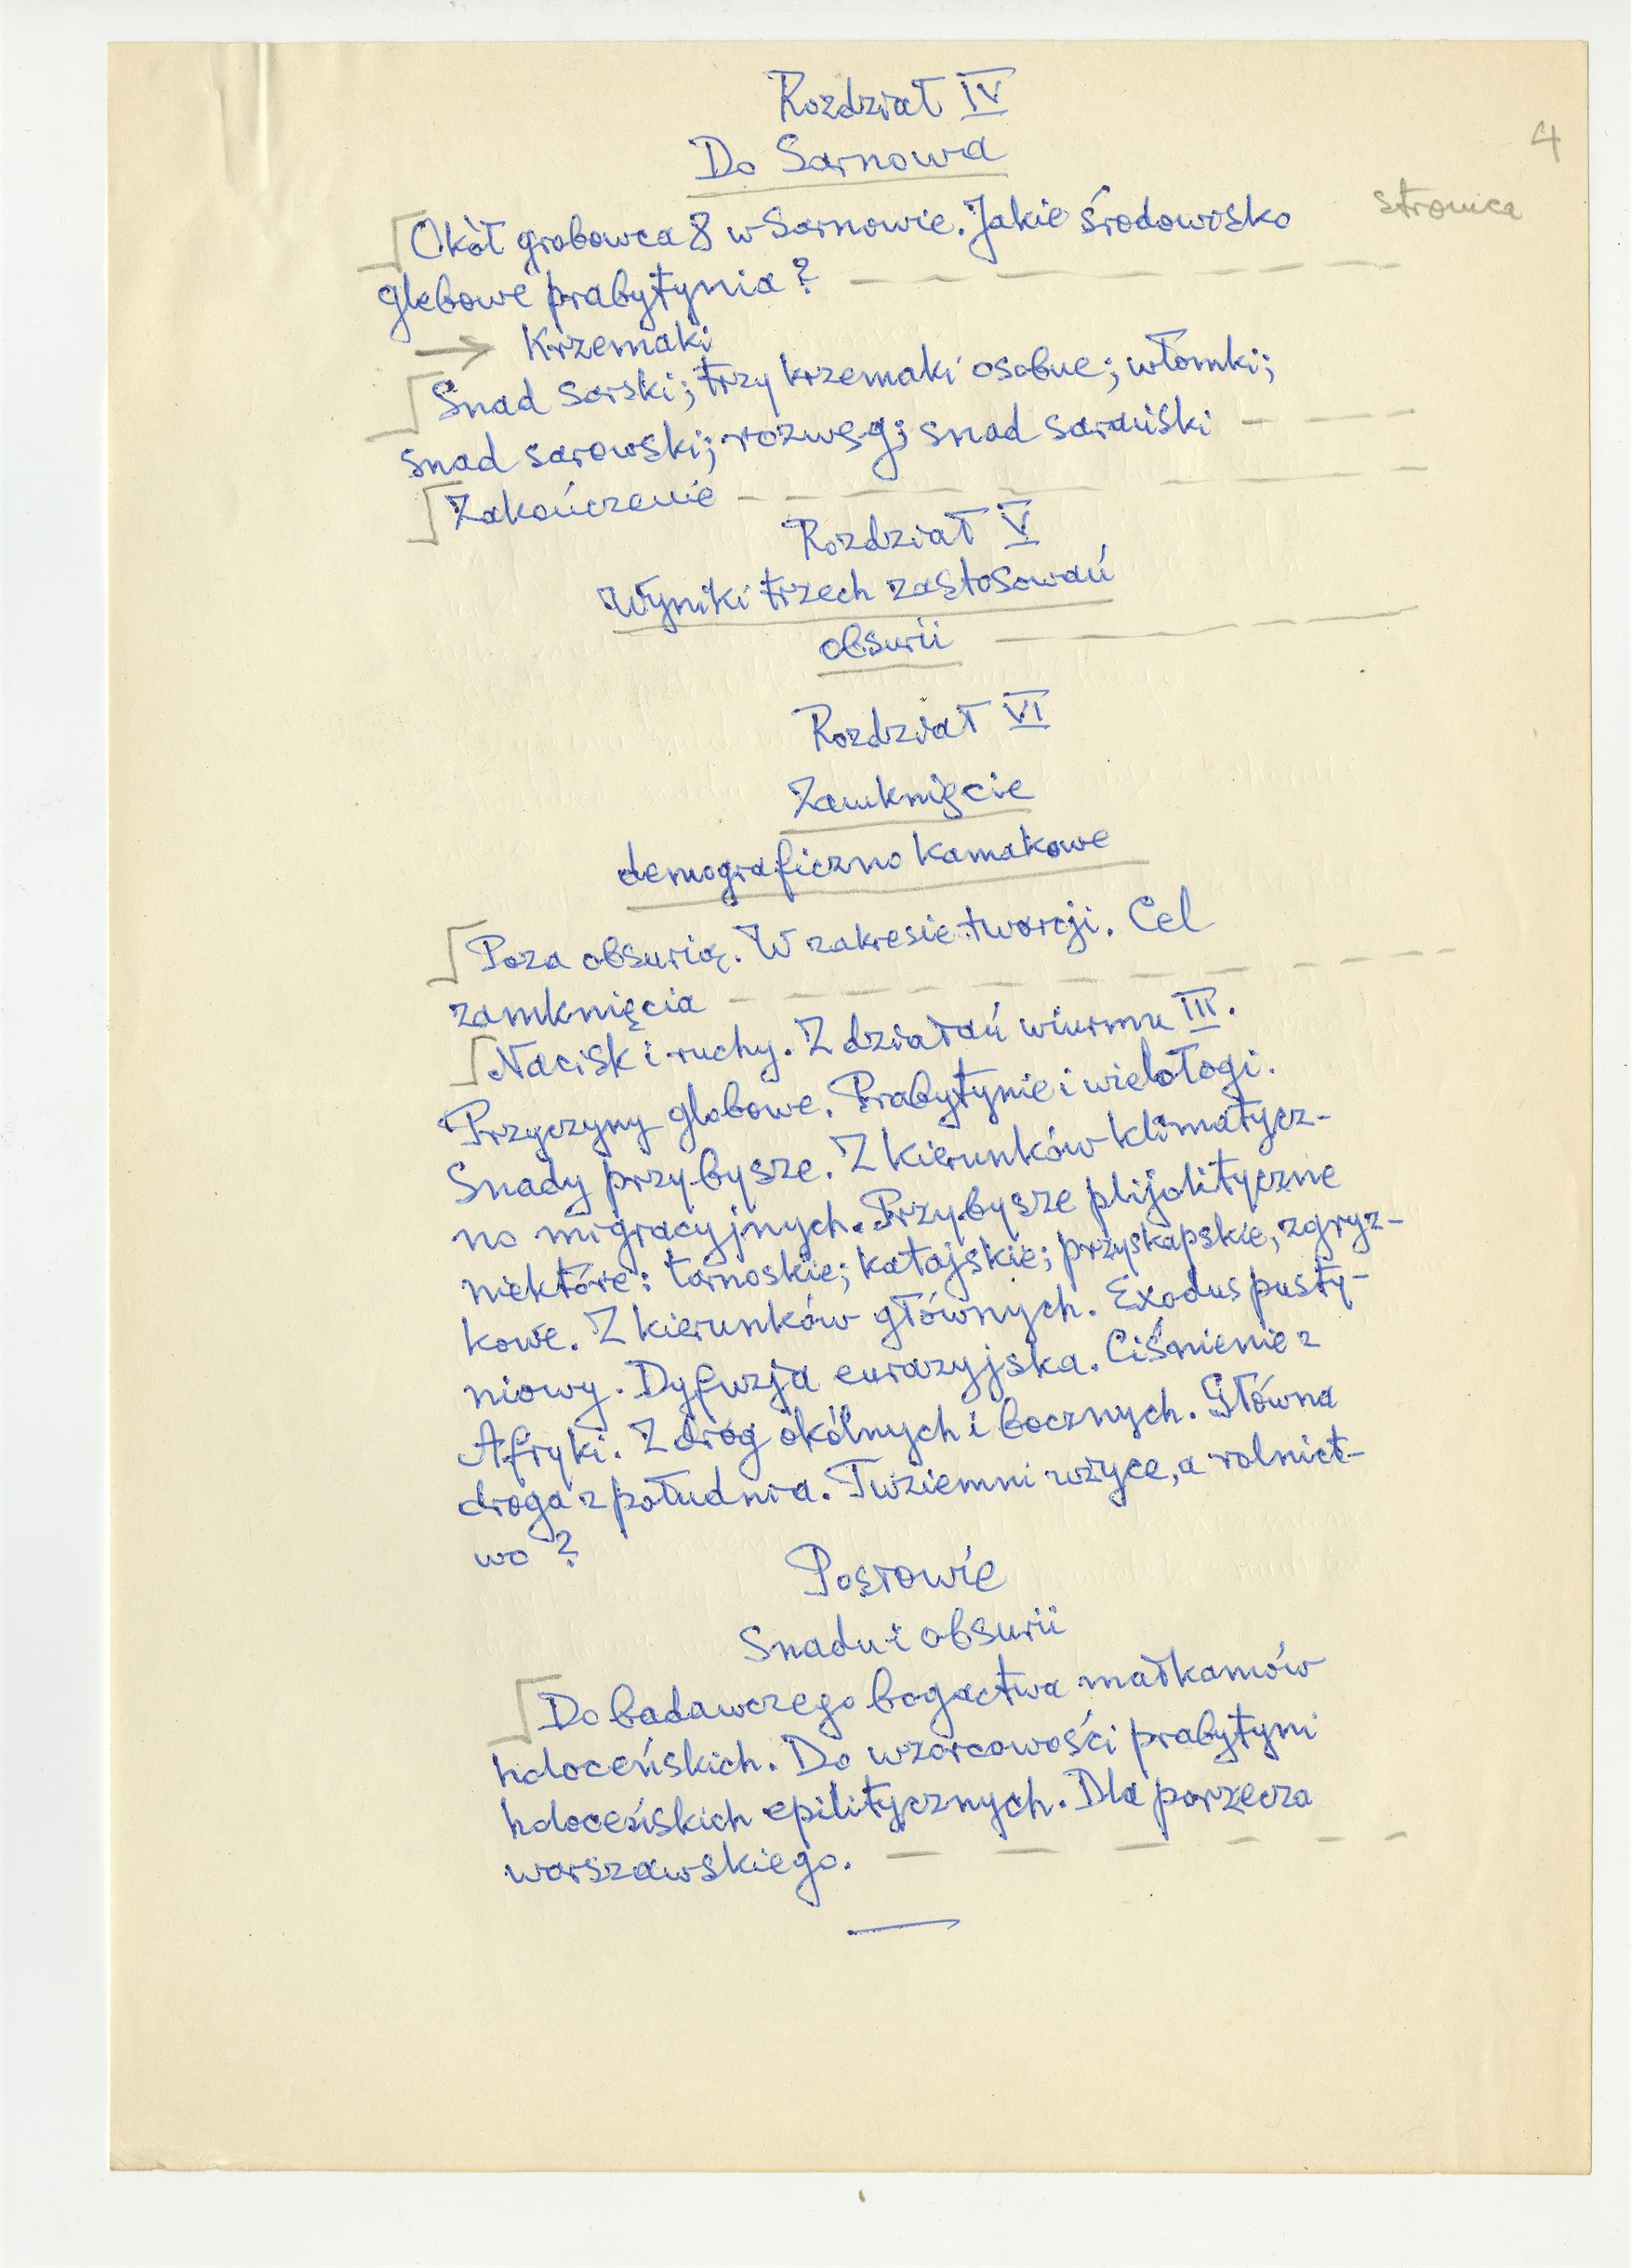 Rozdział IV
4
Do Sarnowa
stronica
Okół grobowca 8 w Sarnowie. Jakie środowisko
glebowe prabytynia? — — — — — — —
→ Krzemaki
Snad sarski; trzy krzemaki osobne; włomki;
snad sarowski; rozwsg; snad sarański — — —
Zakończenie — — — — — — —
Rozdział V
Wyniki trzech zastosowań
obsurii — — — — —
Rozdział VI
Zamknięcie
demograficzno kamakowe
Poza obsurią. W zakresie tworcji. Cel
zamknięcia — — — — — — — —
Nacisk i ruchy. Z działań wiurmu III.
Przyczyny globowe. Prabytynie i wielołogi.
Snady przybysze. Z kierunków klimatycz-
no migracyjnych. Przybysze plijolityczne
niektóre: tornoskie; katajskie; przyskapskie, zgryz-
kowe. Z kierunków głównych. Exodus pusty-
niowy. Dyfuzja eurazyjska. Ciśnienie z
Afryki. Z dróg okólnych i bocznych. Główna
droga z południa. Tuziemni wżyce, a rolnict-
wo?
Posłowie
Snadu i obsurii
Do badawczego bogactwa małkamów
holoceńskich. Do wzorcowości prabytyni
holoceńskich epilitycznych. Dla porzecza
warszawskiego. — — — — — —